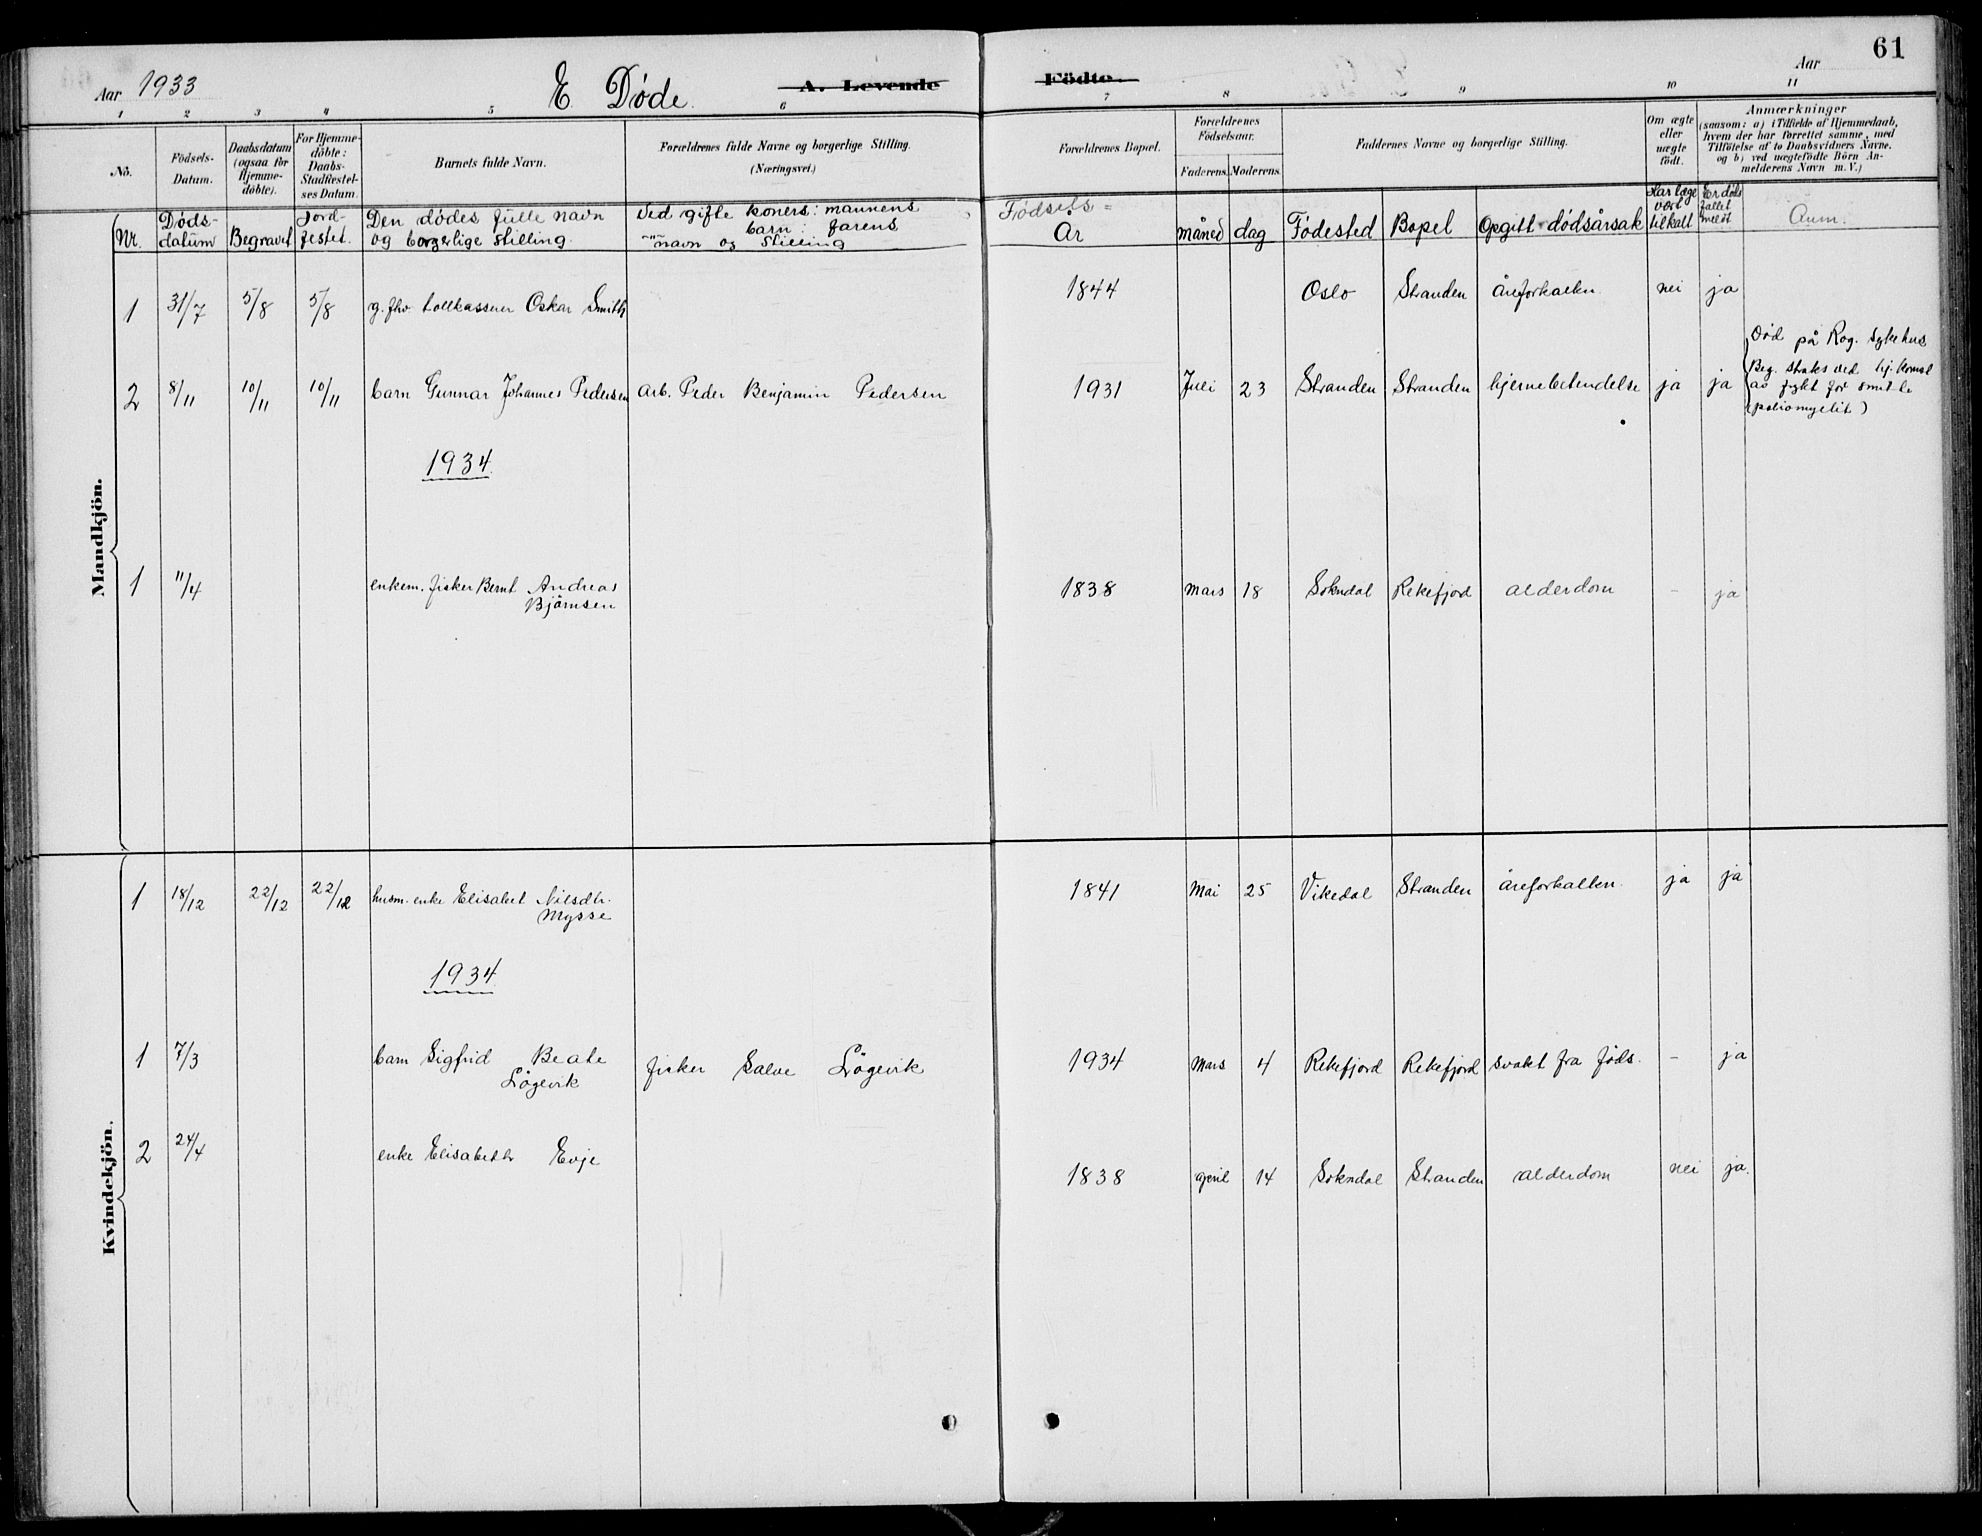 61
Aar 1933
E. Døde.
A. Levende
Födte.
Aar
1 2 3 4 5 6 7 8 9 10 11
No.
Födsels-
Datum.
Daabsdatum
(ogsaa for
Hjemme-
döbte).
For Hjemme-
döbte:
Daabs-
Stadfestel-
ses Datum.
Barnets fulde Navn.
Forældrenes fulde Navne og borgerlige Stilling.
(Næringsvei.)
Forældrenes Bopæl.
Forældrenes
Födselsaar.
Faderens. Moderens.
Faddernes Navne og borgerlige Stilling.
Om ægte
eller
uægte
födt.
Anmærkninger
(saasom: a) i Tilfælde af Hjemmedaab,
hvem der har forrettet samme, med
Tilföielse af to Daabsvidners Navne.
og b) ved uægtefödte Börn An-
melderens Navn m. V.)
Nr.
Døds-
datum
Begravet
Jord-
festet.
Den dødes fulle navn
og borgerlige stilling.
Ved gifte koners: mannens
" barn: farens
navn og stilling
Fødsels=
År
måned
dag
Fødested
Bopel
Opgitt dødsårsak
Har læge
vært
tilkalt
Er døds
fallet
meldt
Anm.
Mandkjön.
1 31/7 5/8 5/8 g. fhv. tollkasserer Oskar Smith 1844 Oslo Stranden åreforkalkn. nei ja
2 8/11 10/11 10/11 barn Gunnar Johannes Pedersen arb. Peder Benjamin Pedersen 1931 Juli 23 Stranden Stranden hjernebetendelse ja ja
Død på Rog. sykehus
Beg. straks ved hj.komst
av frykt for smitte
(poliomyelit)
1934.
1 11/4 enkem. fisker Bernt Andreas
Bjørnsen 1838 Mars 18 Sokndal Rekefjord alderdom - ja
Kvindekjön.
1 18/12 22/12 22/12 husm. enke Elisabet Nilsdtr.
Mysse 1841 Mai 25 Vikedal Stranden åreforkalkn. ja ja
1934
1 7/3 barn Sigfrid Beate
Løgevik fisker Salve Løgevik 1934 Mars 4 Rekefjord Rekefjord svakt fra føds. - ja
2 24/4 enke Elisabeth Evje 1838 april 14 Sokndal Stranden alderdom nei ja.